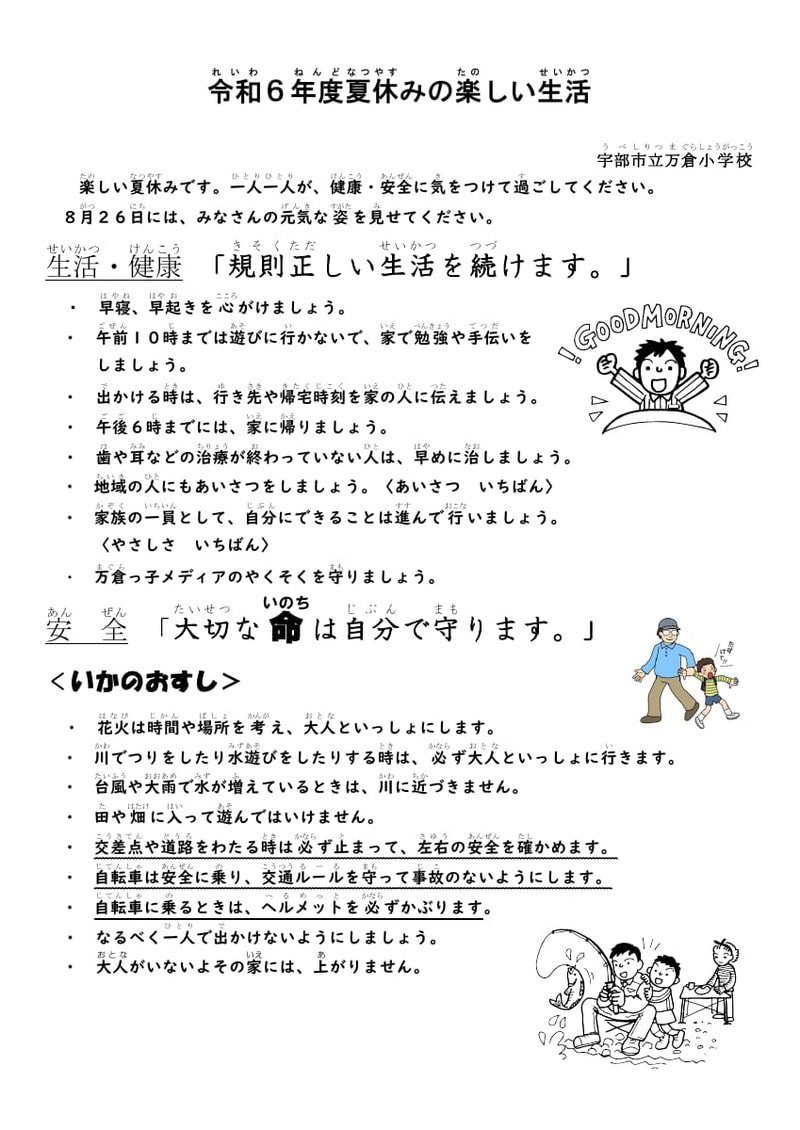 令和６年度夏休みの楽しい生活
宇部市立万倉小学校
楽しい夏休みです。一人一人が、健康・安全に気をつけて過ごしてください。
８月２６日には、みなさんの元気な姿を見せてください。
生活・健康 「規則正しい生活を続けます。」
・ 早寝、早起きを心がけましょう。
・ 午前１０時までは遊びに行かないで、家で勉強や手伝いを
しましょう。
!GOODMORNING!
・ 出かける時は、行き先や帰宅時刻を家の人に伝えましょう。
・ 午後６時までには、家に帰りましょう。
・ 歯や耳などの治療が終わっていない人は、早めに治しましょう。
・ 地域の人にもあいさつをしましょう。〈あいさつ　いちばん〉
・ 家族の一員として、自分にできることは進んで行いましょう。
〈やさしさ　いちばん〉
・ 万倉っ子メディアのやくそくを守りましょう。
安　全 「大切な命は自分で守ります。」
たすけて!!
＜いかのおすし＞
・ 花火は時間や場所を考え、大人といっしょにします。
・ 川でつりをしたり水遊びをしたりする時は、必ず大人といっしょに行きます。
・ 台風や大雨で水が増えているときは、川に近づきません。
・ 田や畑に入って遊んではいけません。
・ 交差点や道路をわたる時は必ず止まって、左右の安全を確かめます。
・ 自転車は安全に乗り、交通ルールを守って事故のないようにします。
・ 自転車に乗るときは、ヘルメットを必ずかぶります。
・ なるべく一人で出かけないようにしましょう。
・ 大人がいないよその家には、上がりません。